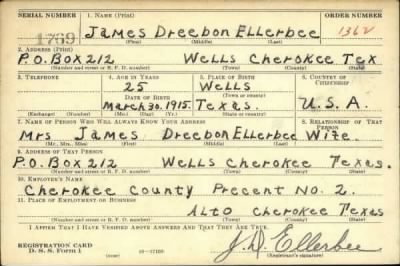 SERIAL NUMBER 1. NAME (Print) ORDER NUMBER
1769 James Dreebon Ellerbee 1362
(First) (Middle) (Last)
2. ADDRESS (Print)
P.O. Box 212 Wells Cherokee Tex.
(Number and street or R. F. D. number) (Town) (County) (State)
3. TELEPHONE 4. AGE IN YEARS 5. PLACE OF BIRTH 6. COUNTRY OF CITIZENSHIP
25 Wells
DATE OF BIRTH (Town or county)
March 30. 1915. Texas. U.S.A.
(Exchange) (Number) (Mo.) (Day) (Yr.) (State or country)
7. NAME OF PERSON WHO WILL ALWAYS KNOW YOUR ADDRESS 8. RELATIONSHIP OF THAT PERSON
Mrs James Dreebon Ellerbee Wife
(Mr., Mrs., Miss) (First) (Middle) (Last)
9. ADDRESS OF THAT PERSON
P.O. Box 212 Wells Cherokee Texas.
(Number and street or R. F. D. number) (Town) (County) (State)
10. EMPLOYER'S NAME
Cherokee County Precent No. 2.
11. PLACE OF EMPLOYMENT OR BUSINESS
Alto Cherokee Texas
(Number and street or R. F. D. number) (Town) (County) (State)
I AFFIRM THAT I HAVE VERIFIED ABOVE ANSWERS AND THAT THEY ARE TRUE.
REGISTRATION CARD
D. S. S. Form 1 J. D. Ellerbee
(Registrant's signature)